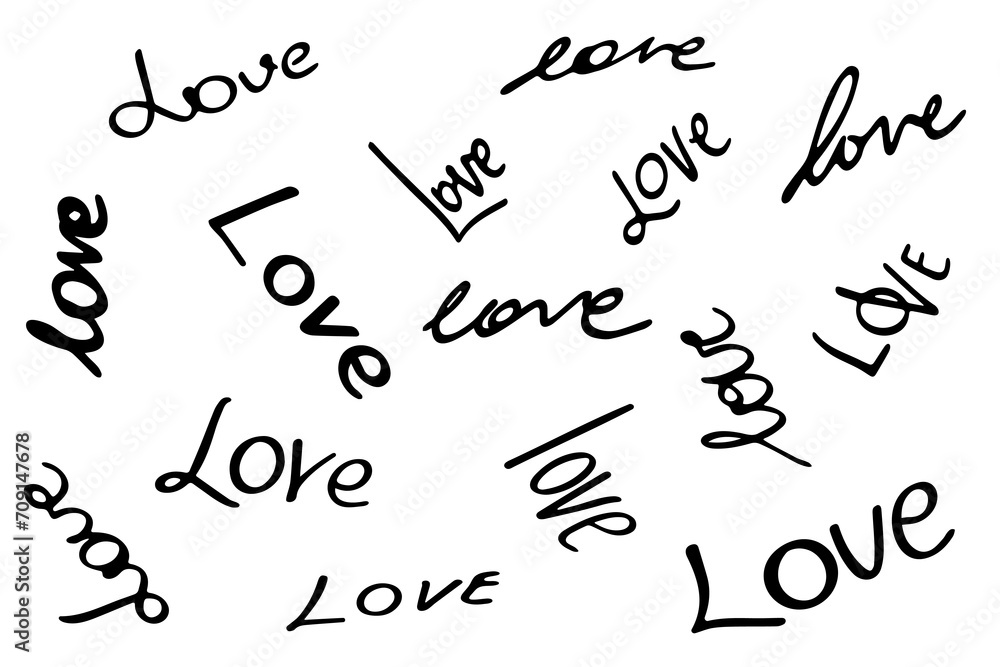 Love
love
love
Love
Love
love
Love
love
LOVE
love
Love
love
love
Love
LOVE
Adobe Stock | #709147678